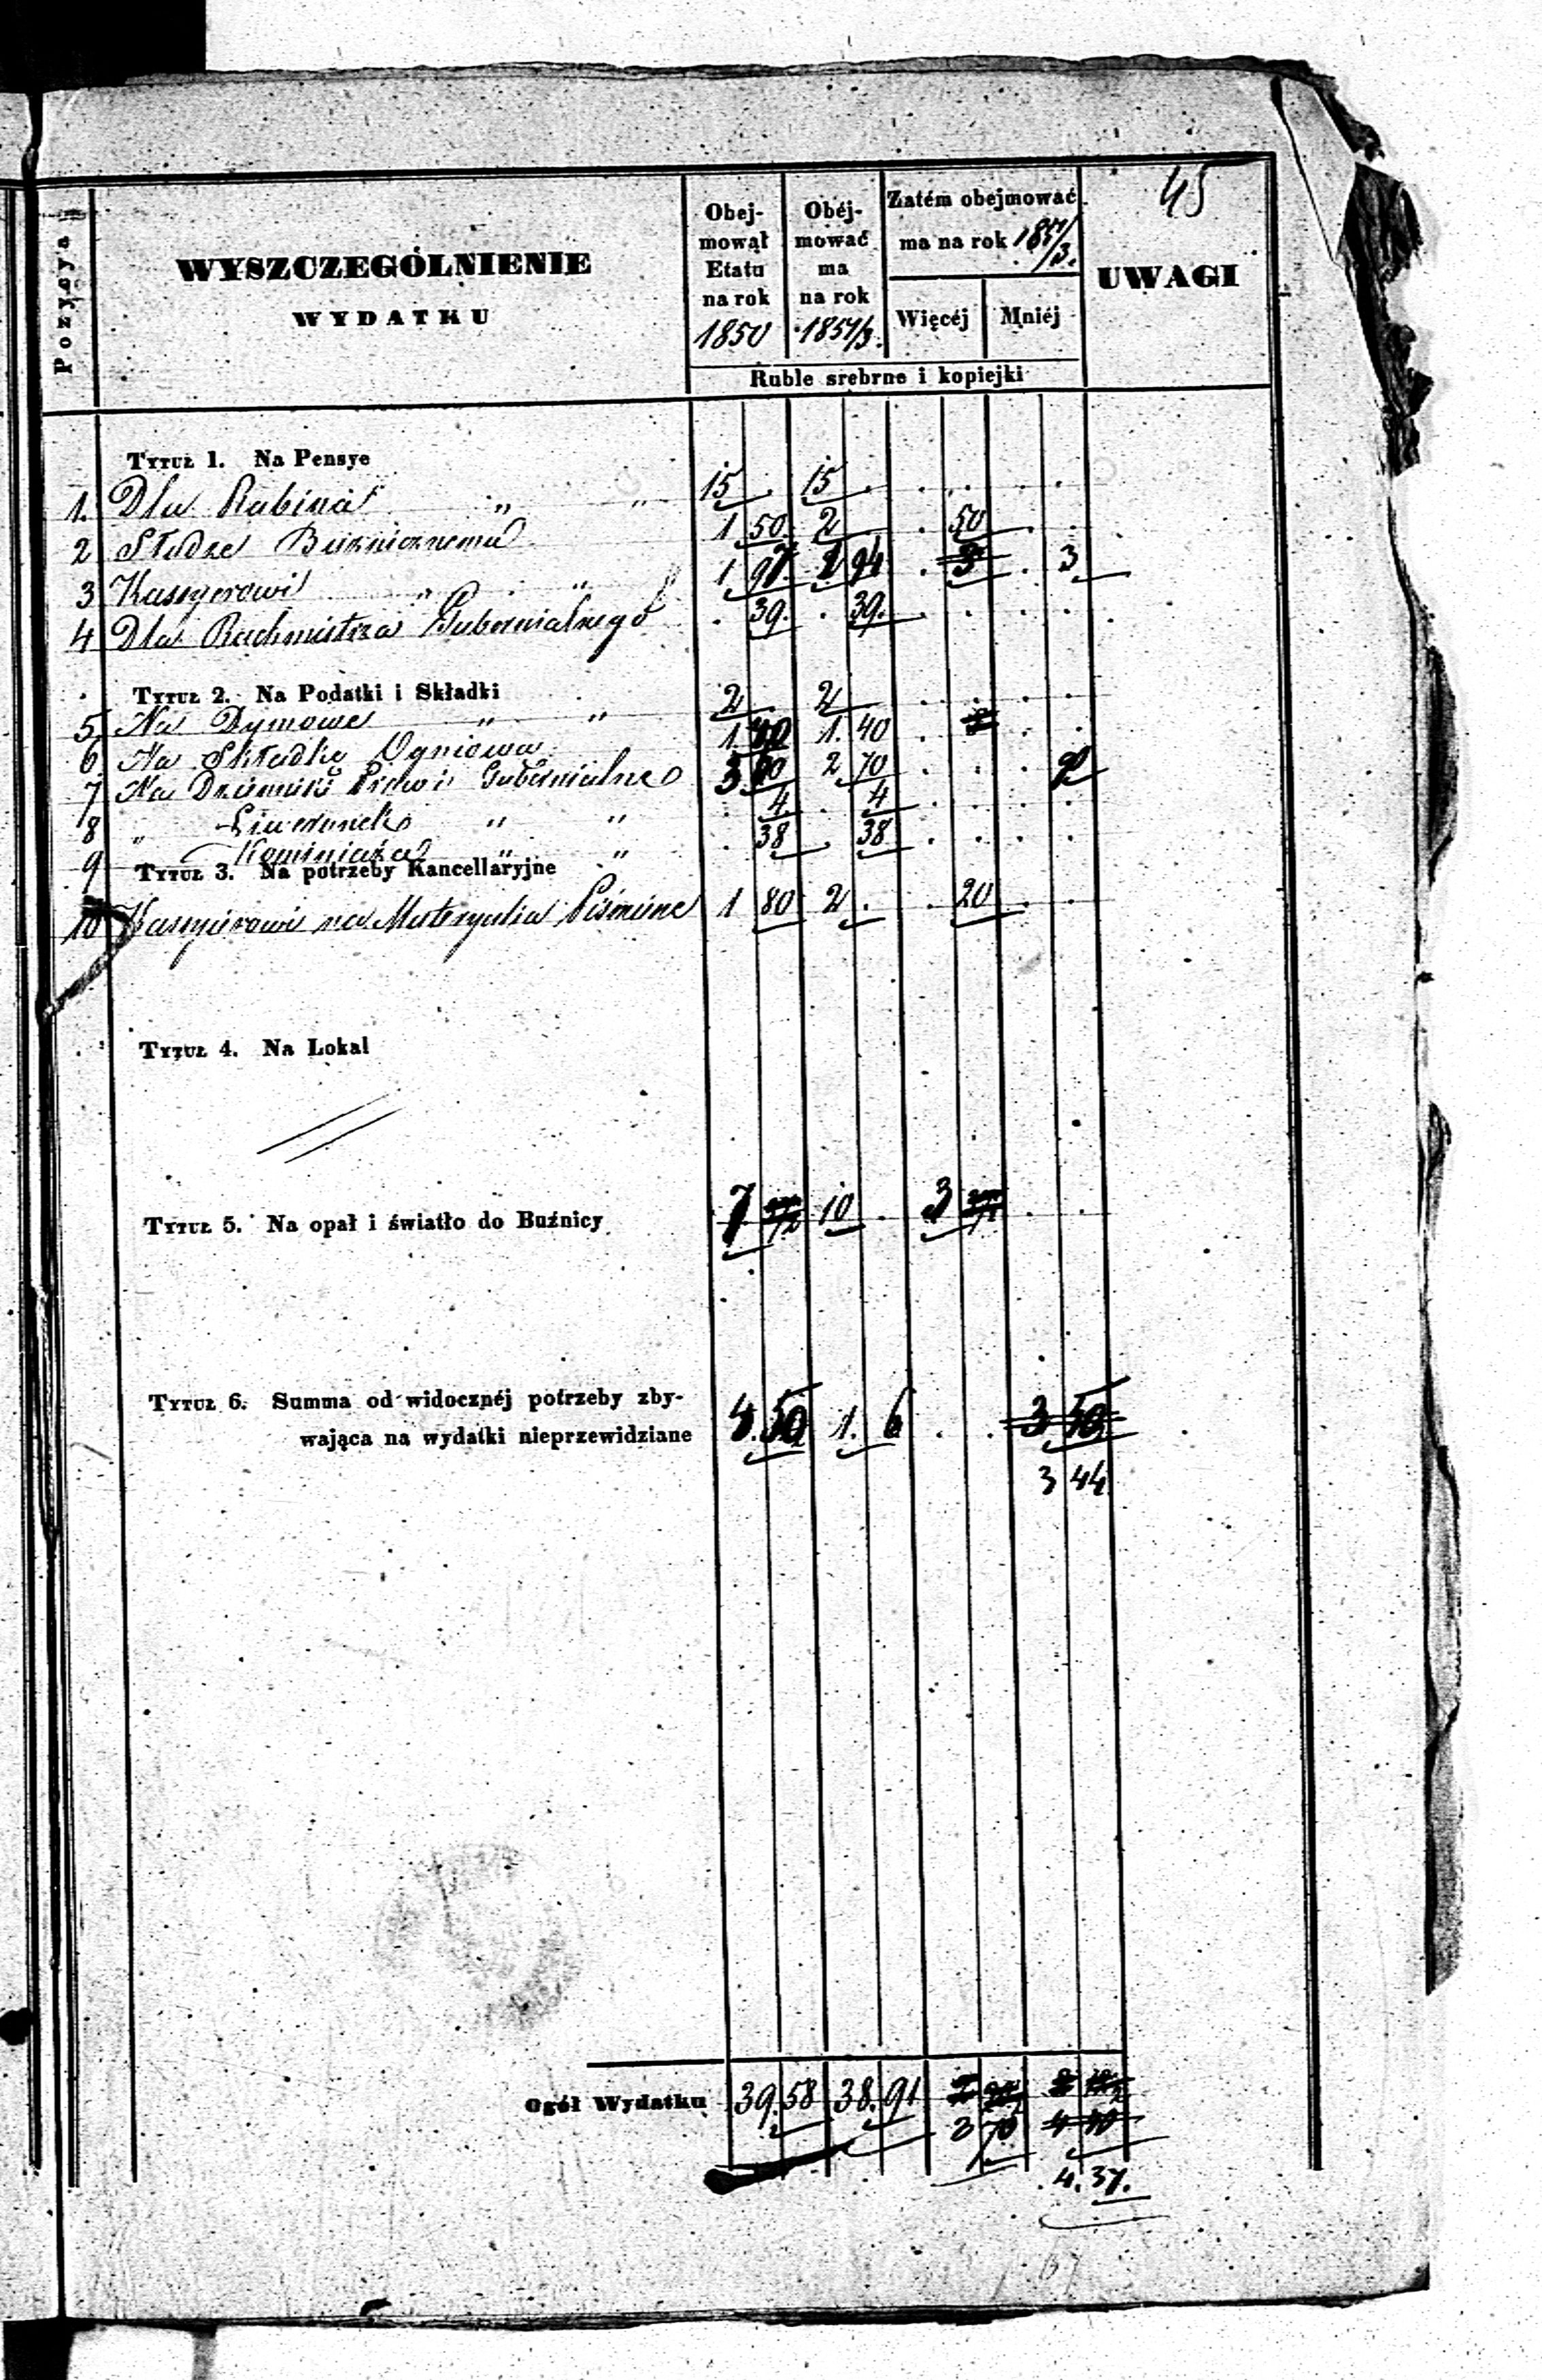 45
Pozycya
WYSZCZEGÓLNIENIE
WYDATKU
Obej-
mował
Etatu
na rok
1850
Obéj-
mować
ma
na rok
1851/3.
Zatém obejmować
ma na rok 1851/3.
Więcéj Mniéj
UWAGI
Ruble srebrne i kopiejki
Tytuł 1. Na Pensye
1. Dla Rabina " " 15 . 15 . . . . .
2 Słudze Bużnicznemu 1 50. 2 . 50 . .
3 Kassyerowi " " 1 97. 1 94 . 3 . 3
4 Dla Rachmistrza Gubernialnego . 39. . 39. . . . .
Tytuł 2. Na Podatki i Składki
5. Na Dymowe " " 2 . 2 . . . . .
6. Na Składkę Ogniową 1. 40 1. 40 . . .
7 Na Dzienniki Praw i Gubernialne 2 70 . . .
8 " Liwerunek " " . 4. . 4 . . . .
9 Kominiarza " " . 38 . 38 . . . .
Tytuł 3. Na potrzeby Kancellaryjne
10 Kassyerowi na Materyalia Piśmine 1 80 2 . . 20 . .
Tytuł 4. Na Lokal
Tytuł 5. Na opał i światło do Buźnicy 7 10 . 3 . .
Tytuł 6. Summa od widocznéj potrzeby zby-
wająca na wydatki nieprzewidziane 4. 50 1. 6 . . 3 50
3 44
Ogół Wydatku 39. 58 38. 91
3 70
4. 37.